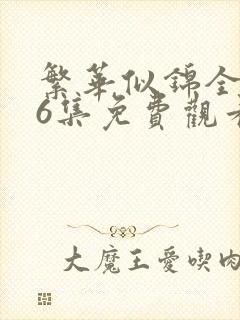 繁華似錦全
6集免費觀看
大魔王愛喫肉